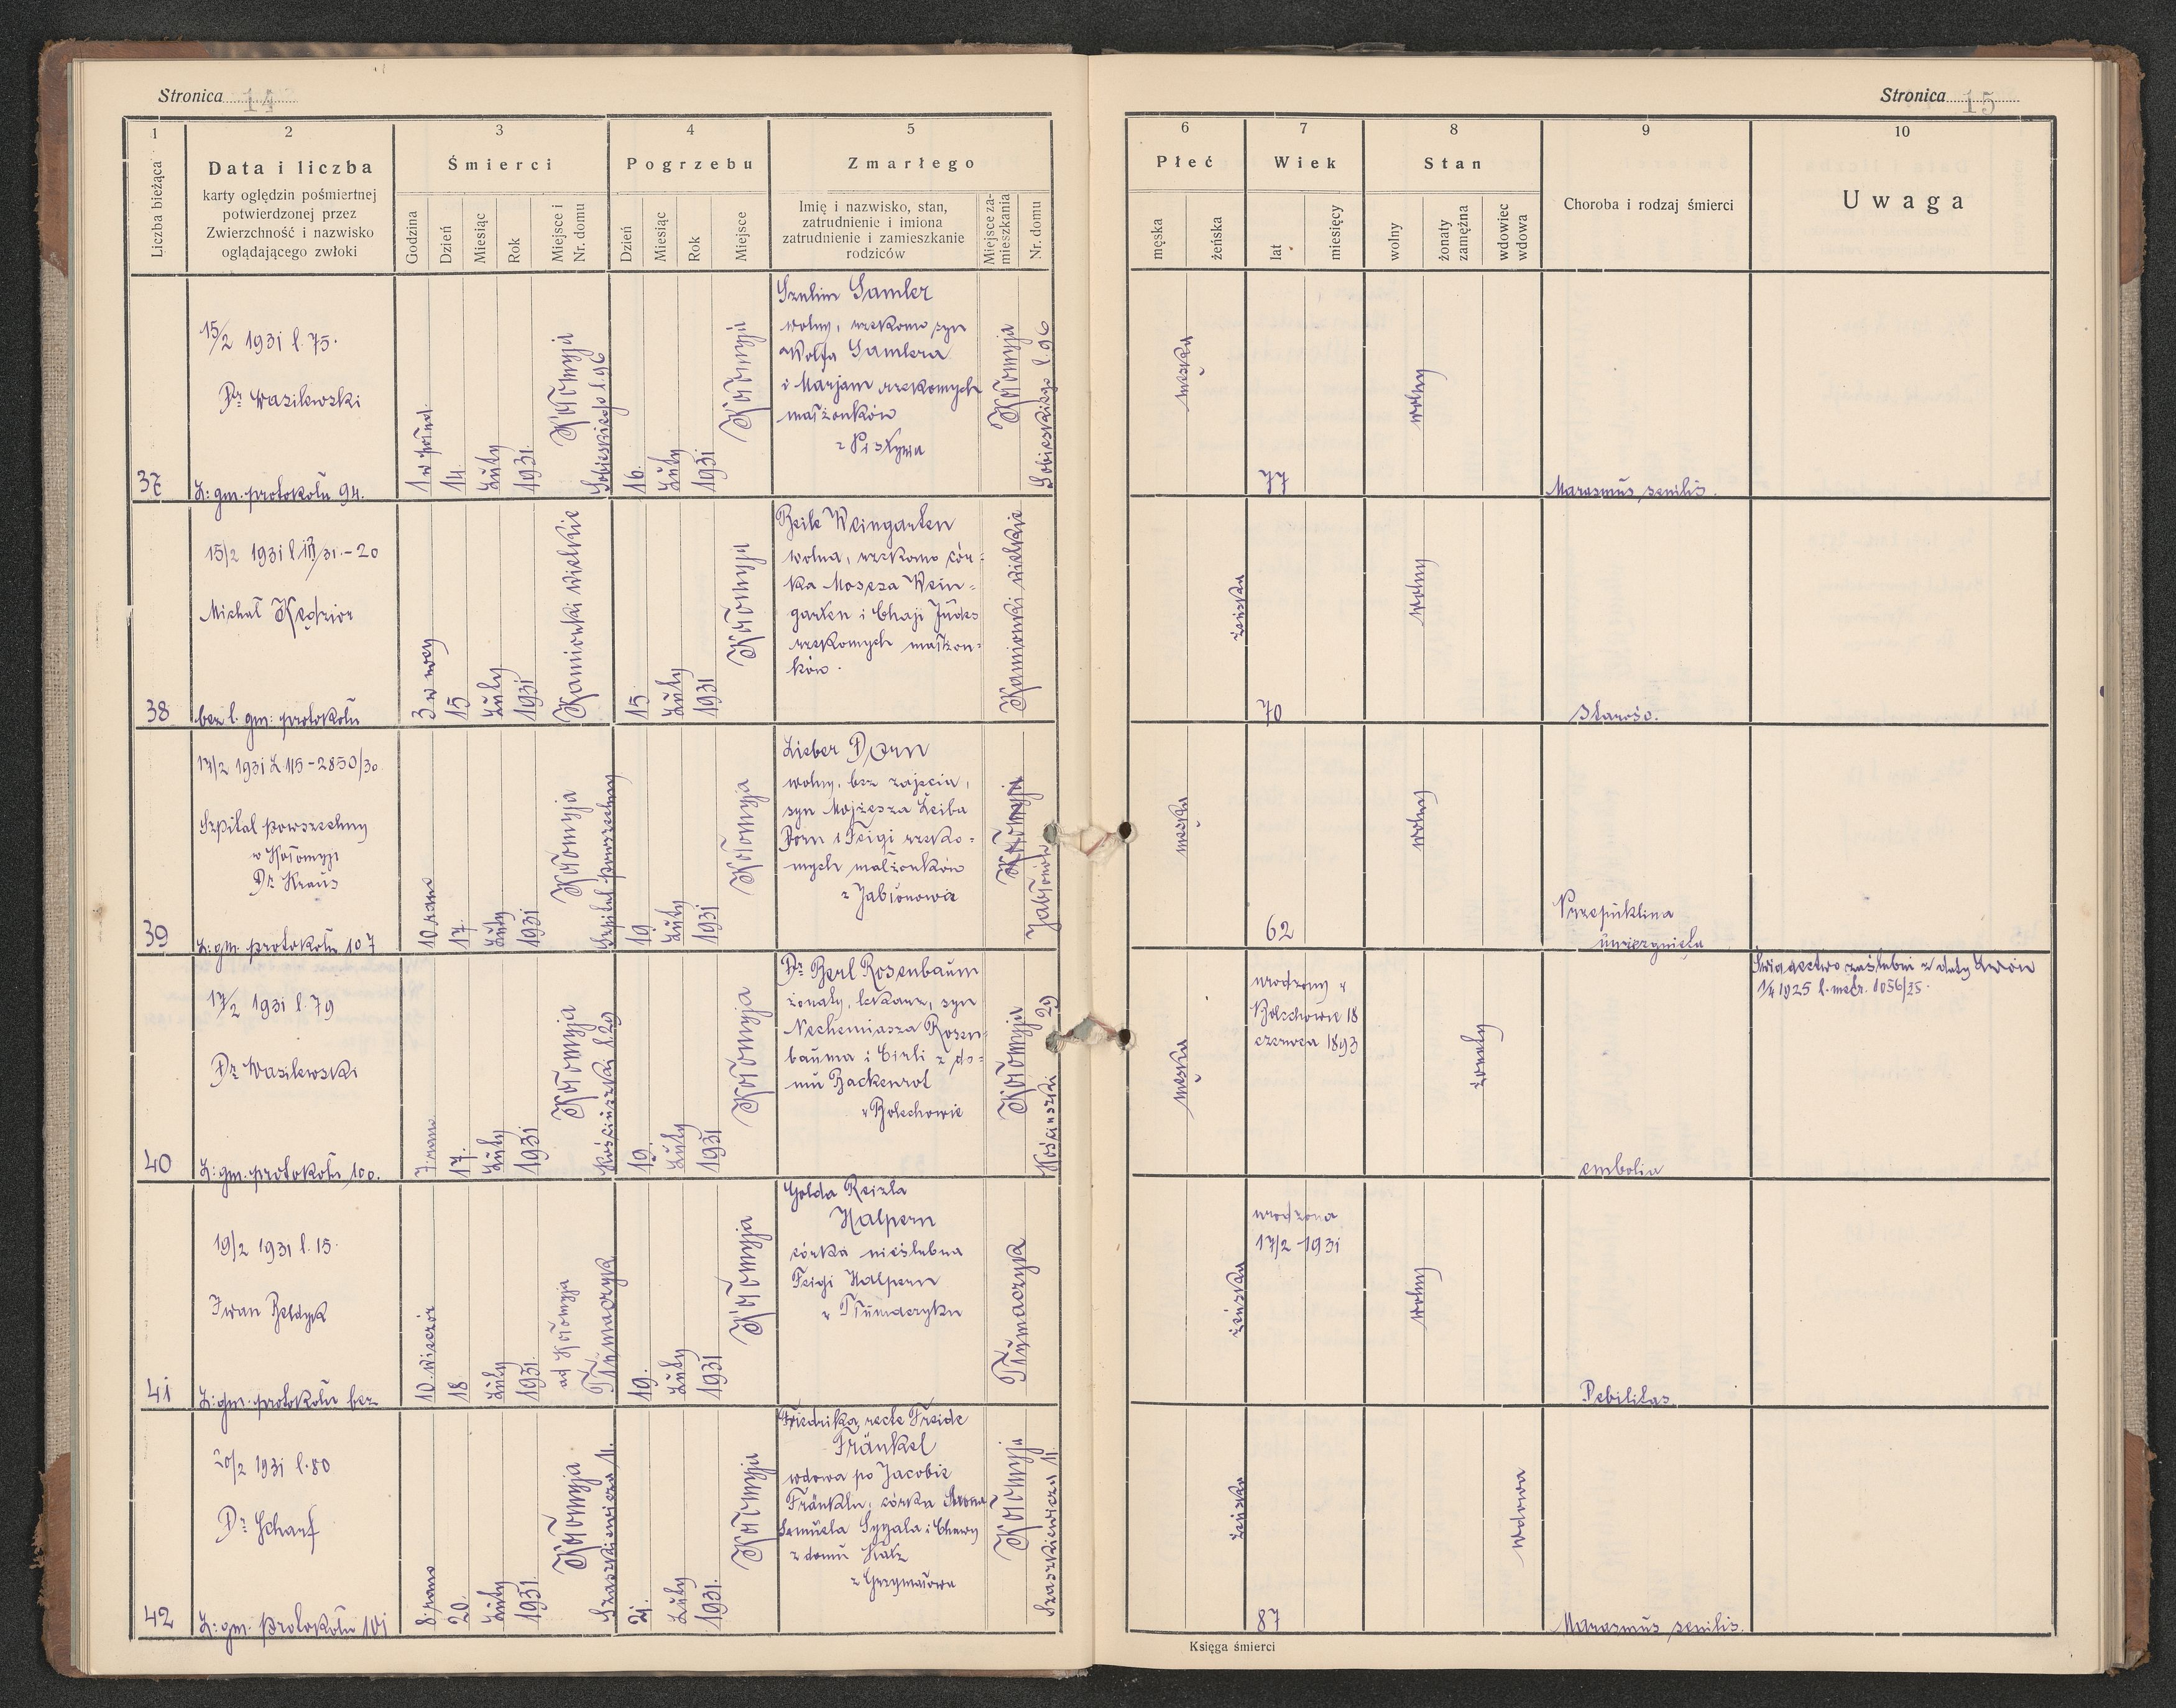 Stronica 14
1 2 3 4 5
Liczba bieżąca
Data i liczba
karty oględzin pośmiertnej
potwierdzonej przez
Zwierzchność i nazwisko
oglądającego zwłoki
Śmierci
Godzina
Dzień
Miesiąc
Rok
Miejsce i
Nr. domu
Pogrzebu
Dzień
Miesiąc
Rok
Miejsce
Zmarłego
Imię i nazwisko, stan,
zatrudnienie i imiona
zatrudnienie i zamieszkanie
rodziców
Miejsce za-
mieszkania
Nr. domu
Stronica 15
6 7 8 9 10
Płeć
męska
żeńska
Wiek
lat
miesięcy
Stan
wolny
żonaty
zamężna
wdowiec
wdowa
Choroba i rodzaj śmierci
Uwaga
37
15/2 1931 l. 75.
Dr Wasilewski
L: gm. protokołu 94.
1 w połud.
14.
Luty
1931.
Kołomyja
Sobieskiego l. 96
16.
Luty
1931
Kołomyja
Szulim Samler
wolny, rzekomo syn
Wolfa Samlera
i Marjam rzekomych
małżonków
z Pistynia
Kołomyja
Sobieskiego l. 96
męska
77
wolny
Marasmus senilis.
38
15/2 1931
Michał Kędzior
bez l. gm: protokołu
3 w nocy
15
Luty
1931
Kamionki wielkie
15
Luty
1931
Kołomyja
Beile Weingarten
wolna, rzekomo cór-
ka Mosesa Wein-
garten i Chaji Judes
rzekomych małżon-
ków.
Kamionki wielkie
żeńska
70
wolny
Starość.
39
17/2 1931 L 115-2850/30
Szpital powszechny
w Kołomyji
Dr Kraus
L: gm. protokołu 107
10 rano
17.
Luty
1931
Kołomyja
Szpital powszechny
19.
Luty
1931
Kołomyja
Lieber Dorn
wolny, bez zajęcia,
syn Mojżesza Leiba
Dorn i Feigi rzeko-
mych małżonków
z Jabłonowa
Kołomyja
Jabłonów
męska
62
wolny
Przepuklina
uwięźgnięta
40
17/2 1931 l. 79
Dr Wasilewski
L: gm. protokołu 100.
7 rano
17.
Luty
1931
Kołomyja
Kościuszki l. 29
19.
Luty
1931
Kołomyja
Dr Berl Rosenbaum
żonaty, lekarz, syn
Nechemiasza Rosen-
bauma i Cirli z do-
mu Backenrot
w Bolechowie
Kołomyja
Kościuszki 29
męska
urodzony w
Bolechowie 18
czerwca 1893
żonaty
embolia
Świadectwo zaślubin z daty Lwów
1/4 1925 l. metr. 1056/25.
41
19/2 1931 l. 15.
Iwan
L: gm. protokołu bez
10. wieczór
18
Luty
1931.
ad Kołomyja
Tłumaczyk
19.
Luty
1931
Kołomyja
Golda Reizla
Halpern
córka nieślubna
Feigi Halpern
w Tłumaczyku
Tłumaczyk
żeńska
urodzona
17/2 1931
wolny
Debilitas
42
20/2 1931 l. 80
Dr Scharf
L: gm. protokołu 101
8. rano
20.
Luty
1931.
Kołomyja
Szaszkiewicza 11.
21.
Luty
1931.
Kołomyja
Friedrika recte Freide
Fränkel
wdowa po Jacobie
Fränklu, córka Arona
Samuela i Chawy
z domu Katz
z Grzymałowa
Kołomyja
Szaszkiewicza 11
żeńska
87
wdowa
Marasmus senilis.
Księga śmierci